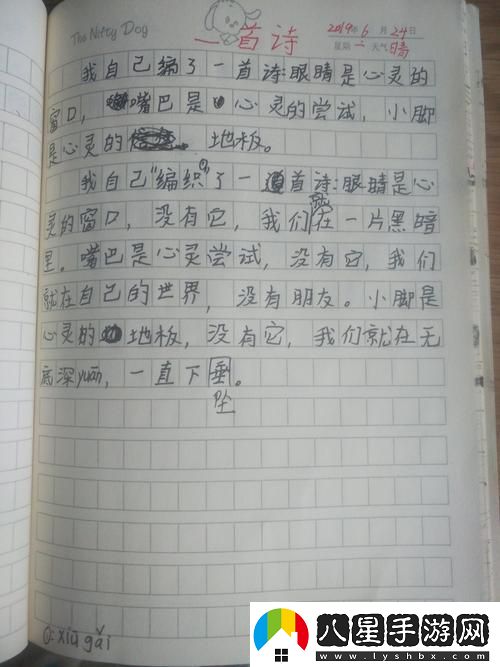 The Nifty Dog
2019年6月24日
星期二 天气晴
一首诗
我自己编了一首诗:眼睛是心灵的
窗口，嘴巴是心灵的尝试，小脚
是心灵的 地板。
我自己"编织"①了一首诗:眼睛是心
灵的窗口，没有它，我们就在一片黑暗
里。嘴巴是心灵尝试，没有它，我们
就在自己的世界，没有朋友。小脚是
心灵的地板，没有它，我们就在无
底深yuān，一直下垂。
坠
①:xiū gǎi
八星手游网
www.lyshbx.com